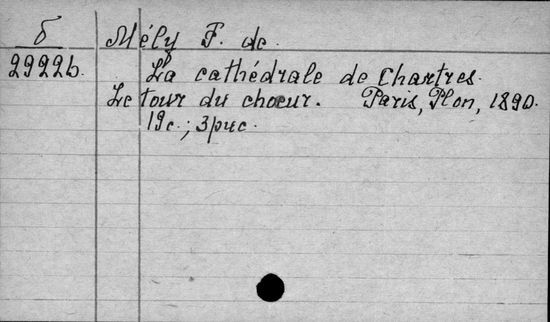 б Mély F. de
29226. La cathédrale de Chartres.
Le tour du choeur. Paris, Plon, 1890.
19c.; 3рис.